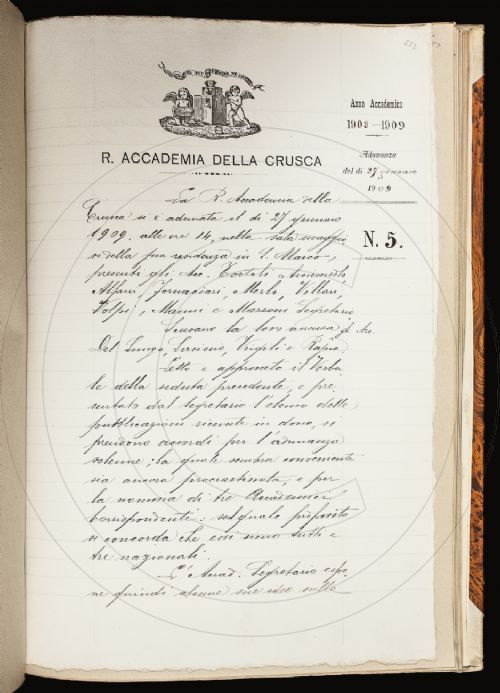 R. ACCADEMIA DELLA CRUSCA
Anno Accademico
1908-1909
Adunanza
del dì 27 gennaio
1909
N. 5.
La R. Accademia della
Crusca si è adunata il dì 27 gennaio
1909. alle ore 14, nella sala maggio
re della sua residenza in S. Marco,
presenti gli Acc. Tortoli Arciconsolo,
Alfani, Fornaciari, Merlo, Villari,
Volpi, e Mazzoni Segretario.
Scusano la loro assenza gli Acc.
Del Lungo, e Rajna.
Letto e approvato il Verba
le della seduta precedente, e pre
sentato dal Segretario l'elenco delle
pubblicazioni ricevute in dono, si
prendono accordi per l'adunanza
solenne; la quale sembra conveniente
sia ancora procrastinata; e per
la nomina di tre Accademici
corrispondenti: sul quale proposito
si concorda che essi sieno tutti e
tre nazionali.
L'Accad. Segretario espo-
ne quindi alcune sue idee sulla